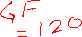 GF
=120